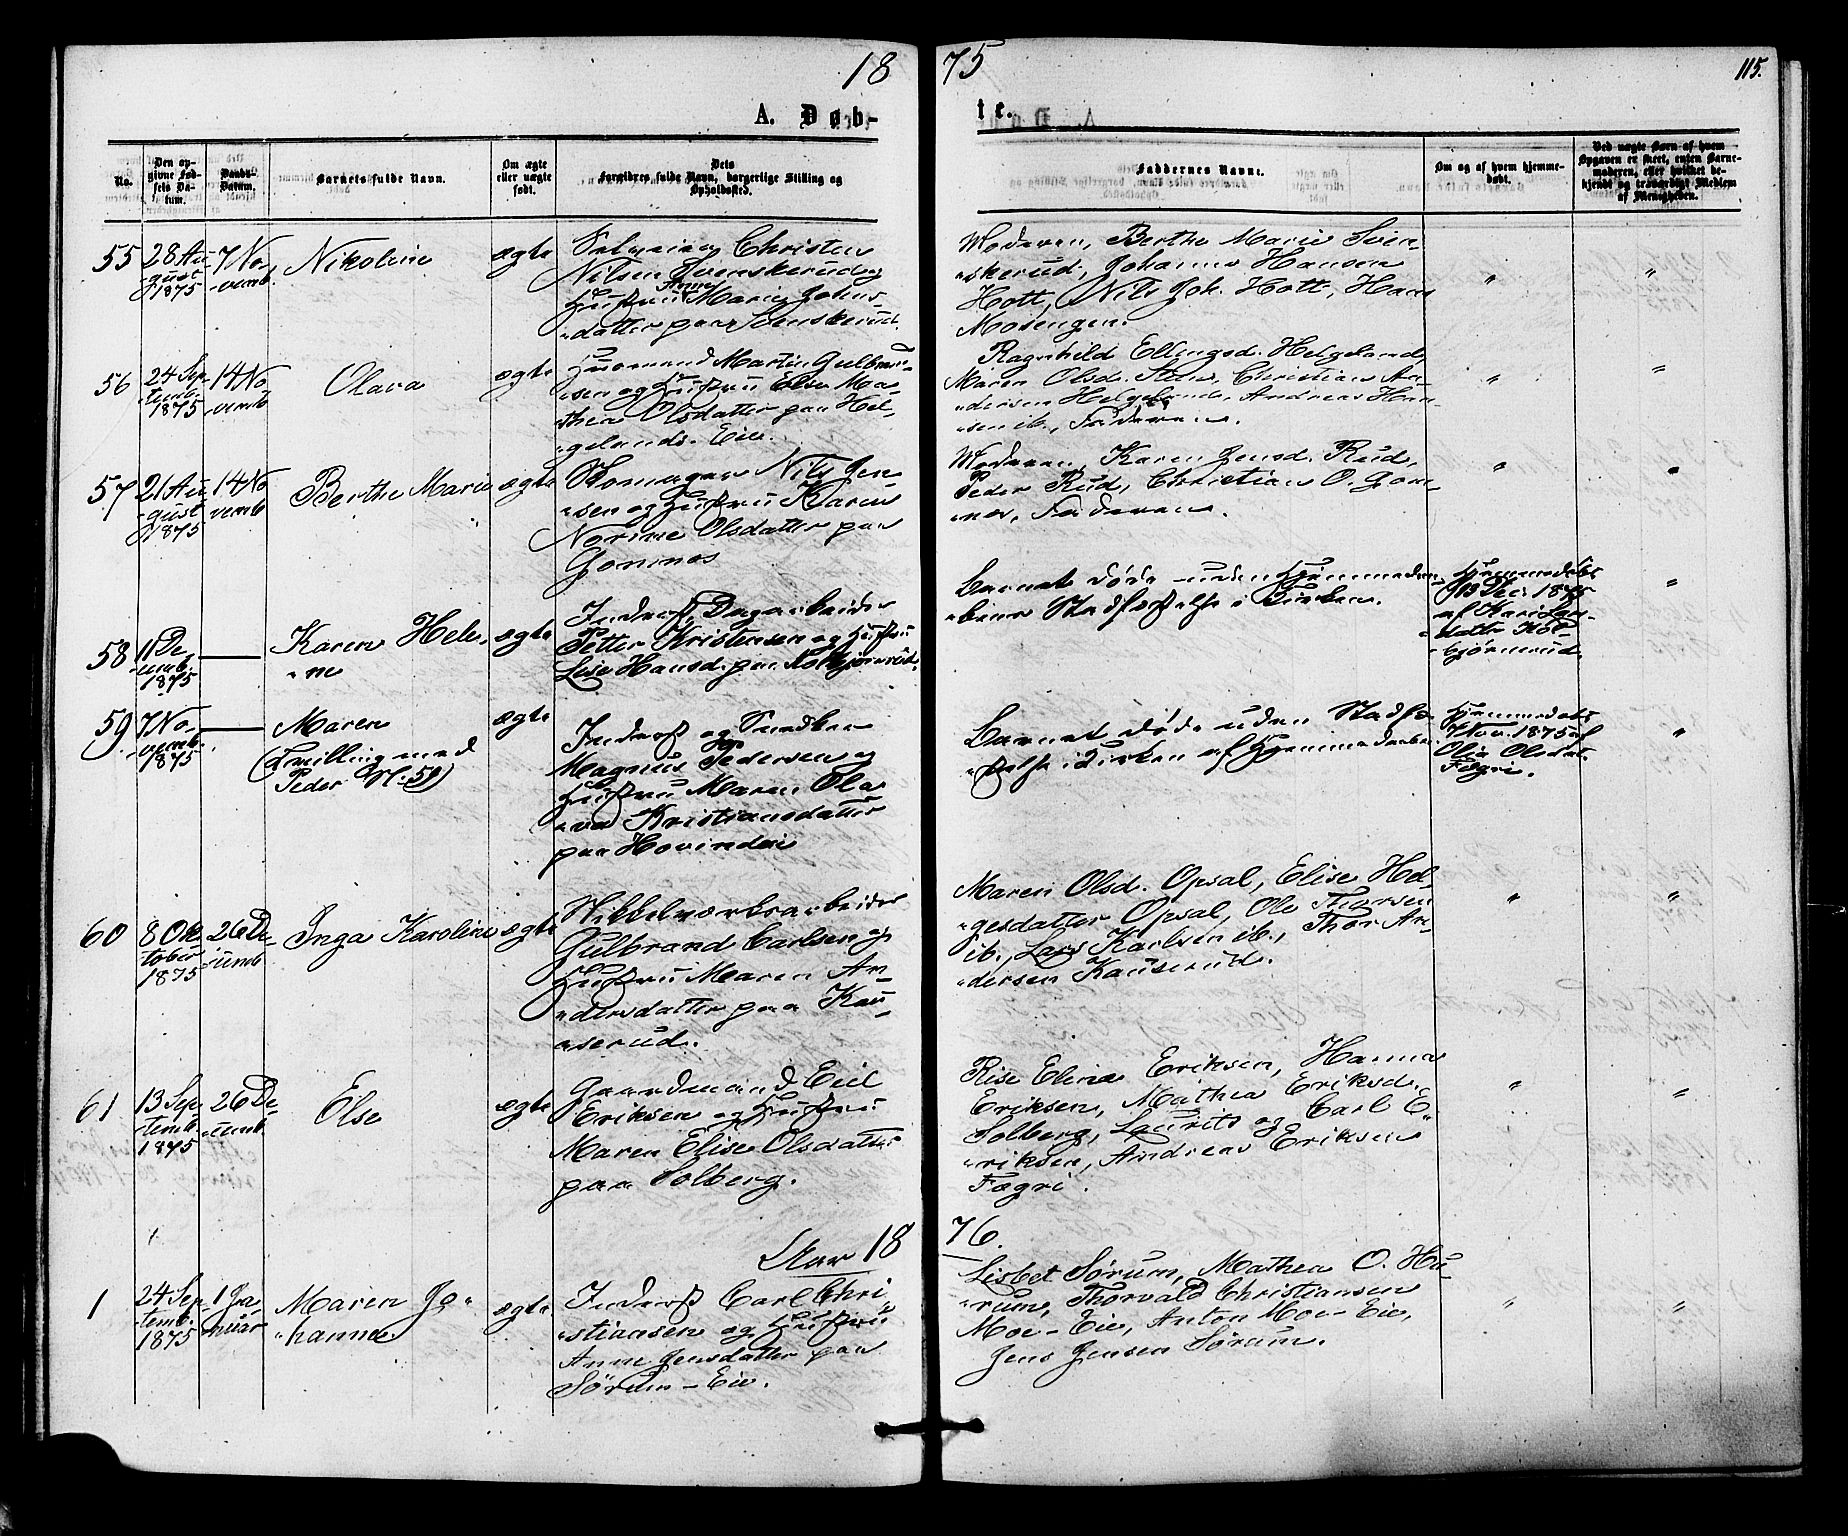 18 75
115.
A. Døb- te.
No.
Den op-
givne Fød-
sels Da-
tum.
Daabs-
Datum.
Barnets fulde Navn.
Om ægte
eller uægte
født.
Dets
Forældres fulde Navn, borgerlige Stilling og
Opholdssted.
Faddernes Navne.
Om og af hvem hjemme-
døbt.
Ved uægte Børn af hvem
Opgaven er skeet, enten Barne-
moderen, eller hvilket be-
kjendt og troværdigt Medlem
af Menigheden.
55
28 Au-
gust
1875
7 No-
vemb.
Nikoline
ægte
Christen
Nilsen Svenskerud og
Hustru Anne Marie Johns-
datter paa Svenskerud.
Moderen, Berthe Marie Sven-
skerud, Johannes Hansen
Hott, Nils Joh. Hott, Hans
Mosengen.
"
"
56
24 Sep-
temb.
1875
14 No-
vemb
Olava
ægte
Huusmand Martin Gulbrand-
sen og Hustru Ellen Ma-
thea Olsdatter paa Hel-
gelands Eie.
Ragnhild Ellingsd. Helgeland,
Maren Olsd. Steen, Christian An-
dersen Helgeland, Andreas Han-
sen ib., Faderen.
"
"
57
21 Au-
gust
1875
14 No-
vemb
Berthe Marie
ægte
Skomager Nils Jen-
sen og Hustru Karen
Norine Olsdatter paa
Gomnes
Moderen, Karen Jensd. Rud,
Peder Rud, Christian O. Gom-
nes, Faderen.
"
"
58
11 De-
cemb.
1875
Karen Hele-
ne
ægte
Inderst, Dagarbeider
Petter Kristensen og Hustru
Lise Hansd. paa Kolbjørnrud.
Barnet døde uden Hjemmedaa-
bens Stadfæstelse i Kirken.
Hjemmedøbt
13 Dec. 1875
af Kari Lars-
datter Kol-
bjørnrud.
"
59
7 No-
vemb.
1875
Maren
(Tvilling med
Peder No. 51)
ægte
Inderst og Snedker
Magnus Pedersen og
Hustru Maren Ola-
va Kristiansdatter
paa Hovindeie
Barnet døde uden Stadfæ-
stelse i Kirken af Hjemmedaaben.
Hjemmedøbt
7 Nov. 1875 af
Olia Olsdat.
Fægri.
"
60
8 Ok-
tober
1875
26 De-
cemb
Inga Karoline
ægte
Nikkelværksarbeider
Gulbrand Carlsen og
Hustru Maren An-
dersdatter paa Kau-
serud.
Maren Olsd. Opsal, Elise Hel-
gesdatter Opsal, Ole Thorsen
ib., Lars Karlsen ib., Thor An-
dersen Kauserud.
"
"
61
13 Sep-
temb.
1875
26 De-
cemb.
Else
ægte
Gaardmand Eril
Eriksen og Hustru
Maren Elise Olsdatter
paa Solberg.
Rise Elina Eriksen, Hanna
Eriksen, Mathea Eriksd.
Solberg, Laurits og Carl E-
riksen, Andreas Eriksen
Fægri.
"
"
Aar 18 76.
1
24 Sep-
temb.
1875
1 Ja-
nuar
Maren Jo-
hanne
ægte
Inderst Carl Chri-
stiansen og Hustru
Anne Jensdatter paa
Sørum-Eie.
Lisbet Sørum, Mathea O. Hu-
rum, Thorvald Christiansen
Moe-Eie, Anton Moe-Eie,
Jens Jensen Sørum.
"
"